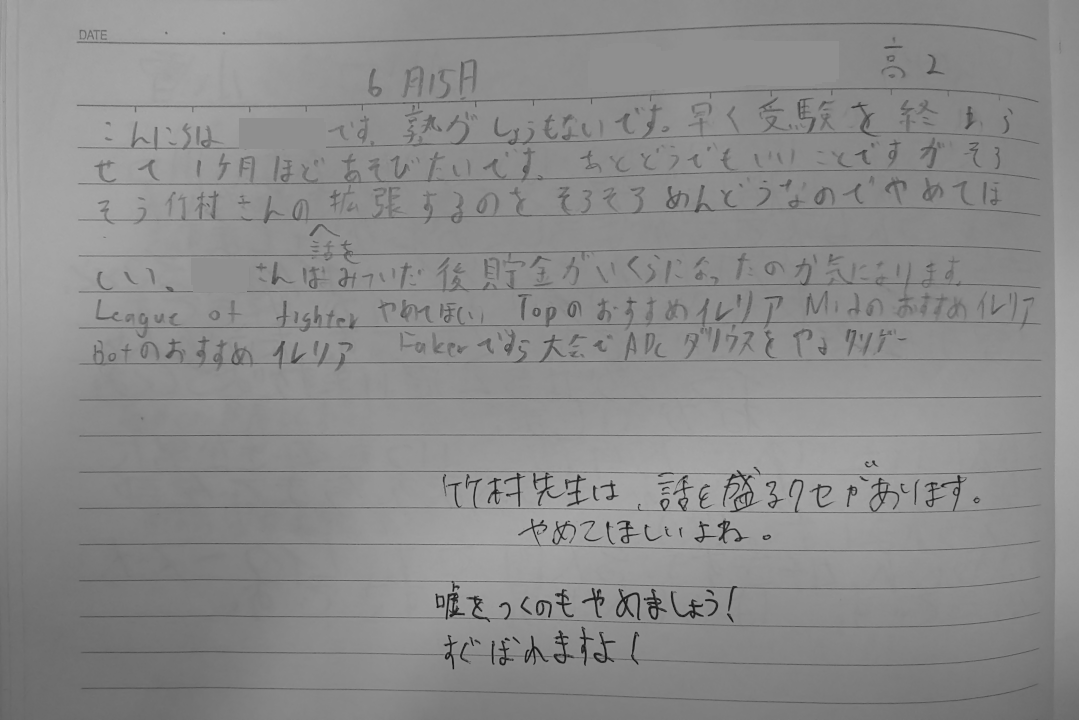 DATE
6月15日 高2
こんにちは です。塾がしょうもないです。早く受験を終わら
せて1ヶ月ほどあそびたいです。あとどうでもいいことですがそろ
そろ竹村さんの拡張するのをそろそろめんどうなのでやめてほ
へ話を
しい。 さんはみついだ後貯金がいくらになったのか気になります。
League of fighter やめてほしい Topのおすすめイレリア Midのおすすめイレリア
Botのおすすめイレリア Fakerですら大会でADCダリウスをやる クソゲー
竹村先生は、話を盛るクセがあります。
やめてほしいよね。
嘘をつくのもやめましょう!
すぐばれますよ!